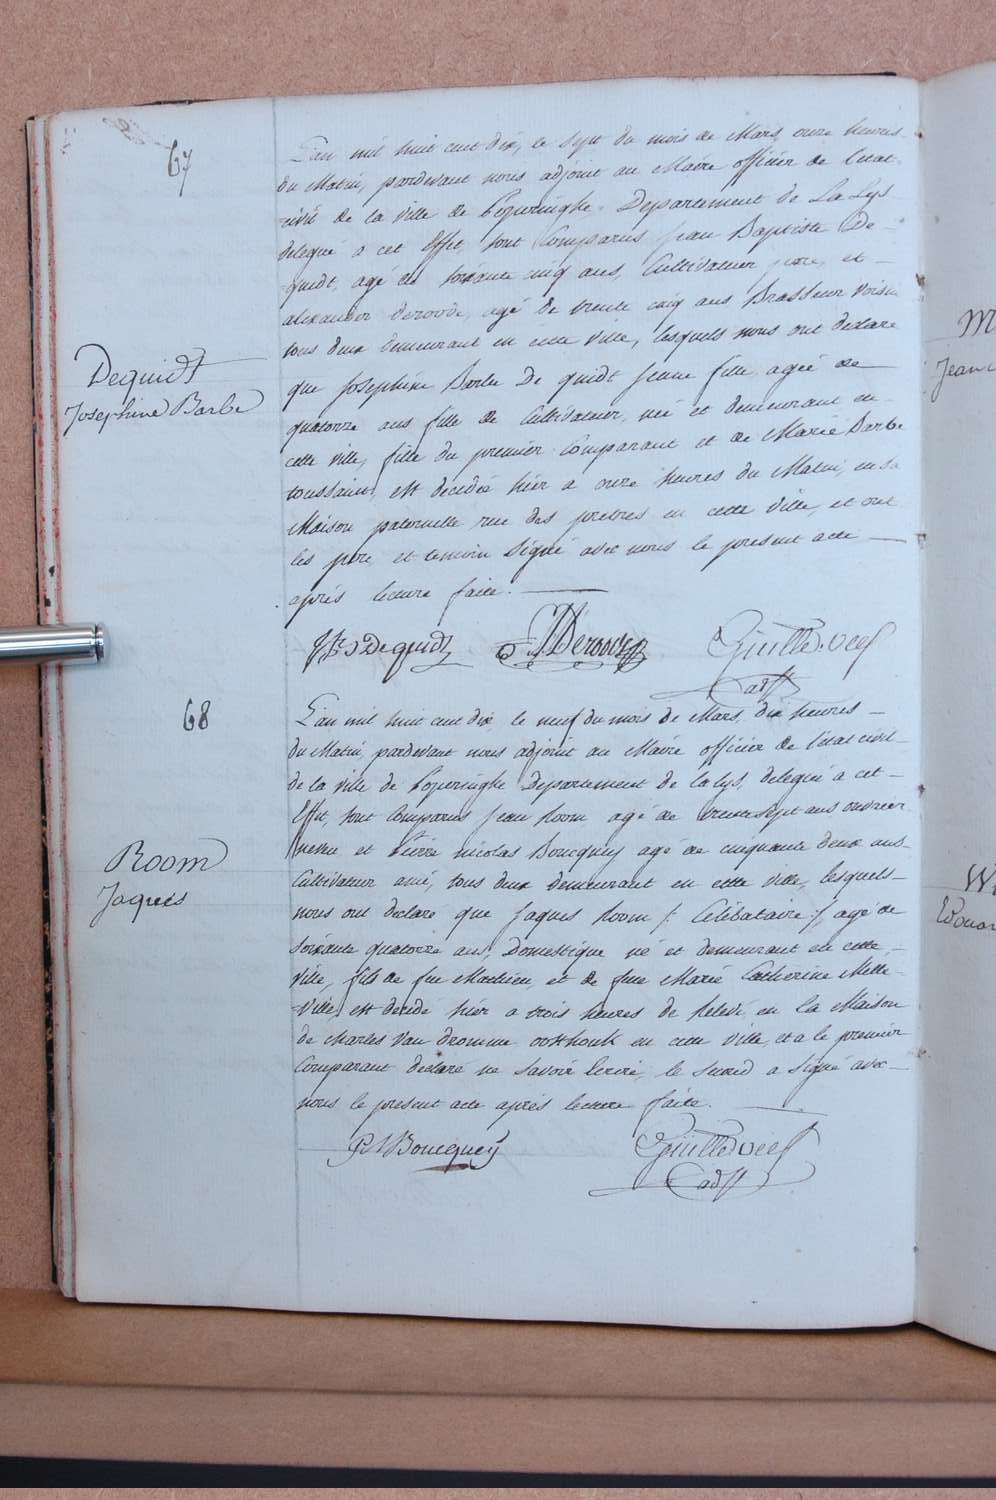 67
L'an mil huit cent dix, le sept du mois de Mars, onze heures
du Matin, pardevant nous adjoint au Maire officier de l'etat
civil de la ville de Poperinghe Departement de La Lys
delegué a cet Effet, sont Comparus Jean Baptiste De-
quidt, agé de soixante cinq ans, Cultivateur pere, et
alexander deroode, agé de trente cinq ans Brasseur voisin
tous deux demeurant en cette ville, lesquels nous ont declaré
Dequidt
Josephine Barbe
que Josephine Barbe De quidt jeune fille agée de
quatorze ans fille de Cultivateur, né et demeurant en
cette ville, fille du premier Comparant et de Marie Barbe
toussaint, est decedée hier a onze heures du Matin, en sa
Maison paternelle rue des pretres en cette ville, et ont
les pere, et temoin Signé avec nous le present acte
aprés lecture faite.
JBte Dequidt Deroode
adjt
68
L'an mil huit cent dix, le neuf du mois de Mars, dix heures
du Matin, pardevant nous adjoint au Maire officier de l'etat civil
de la ville de Poperinghe Departement de la lys, delegué a cet
Effet, sont Comparus Jean Room agé de trente sept ans ouvrier
neveu et Pierre nicolas Boucquey agé de cinquante deux ans
Cultivateur ami, tous deux demeurant en cette ville, lesquels
Room
Jaques
nous ont declaré que Jaques Room /: Célibataire :/, agé de
soixante quatorze ans, Domestique né et demeurant en cette
ville, fils de feu Mathieu, et de feue Marie Catherine Mette-
ville, est decidé hier a trois heures de Relevé, en la Maison
de Charles Van dromme oosthouk en cette ville, et a le premier
Comparant declaré ne savoir Ecrire, le second a signé avec
nous le present acte aprés lecture faite.
P N Boucquey
adjt